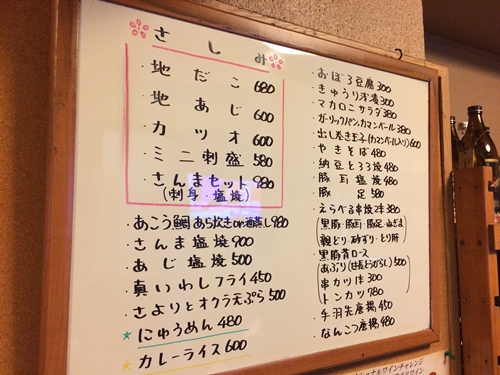 さしみ
・地だこ 680
・地あじ 600
・カツオ 600
・ミニ刺盛 580
・さんまセット 980
(刺身・塩焼)
・あこう鯛あら炊きor酒蒸し 980
・さんま塩焼 900
・あじ塩焼 500
・真いわしフライ 450
・さよりとオクラ天ぷら 500
・にゅうめん 480
・カレーライス 600
・おぼろ豆腐 300
・きゅうり浅漬 300
・マカロニサラダ 380
・ガーリックパン,カマンベール 380
・出し巻き玉子(カマンベール入り) 600
・やきそば 480
・納豆とろろ焼 480
・豚耳塩焼 480
・豚足 580
・えらべる串焼2本 380
(黒豚・豚肩・豚足・ねぎま
親どり・砂ずり・とり肝)
・黒豚背ロース
あぶり(甘長とうがらし) 500
串カツ1本 300
トンカツ 780
・手羽先唐揚 450
・なんこつ唐揚 480
ナルワインチャレンジ